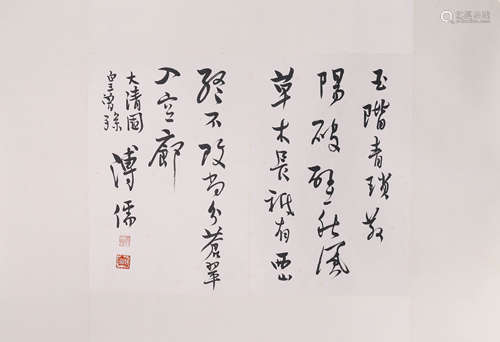 玉階青瑣散
陽破壁秋風
草木長祗有西山
終不改尚分蒼翠
入空廊
大清國
皇曾孫
溥儒